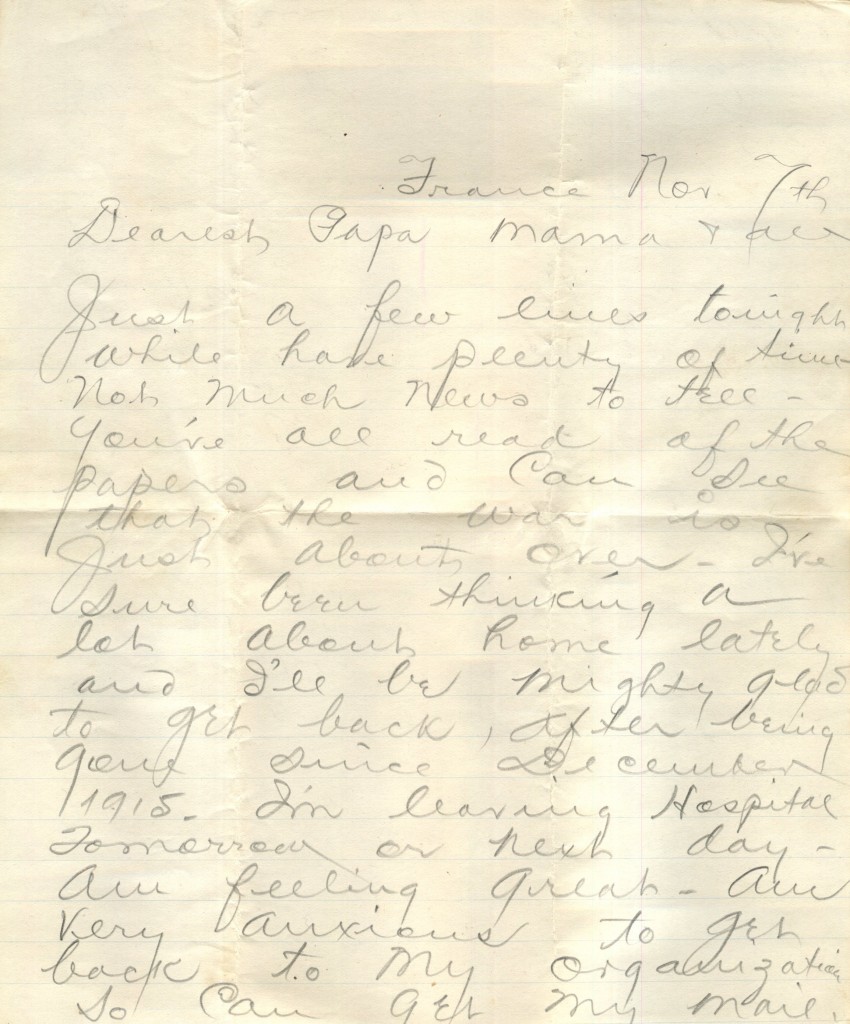 France Nov 7th
Dearest Papa Mama & all
Just a few lines tonight
while have plenty of time
Not much News to tell -
You've all read of the
papers and Can See
that the war is
Just about over - I've
Sure been thinking a
lot about home lately
and I'll be mighty glad
to get back, after being
gone since December
1915. I'm leaving Hospital
Tomorrow or next day -
Am feeling great - Am
very anxious to get
back to My organization
So Can get My mail.